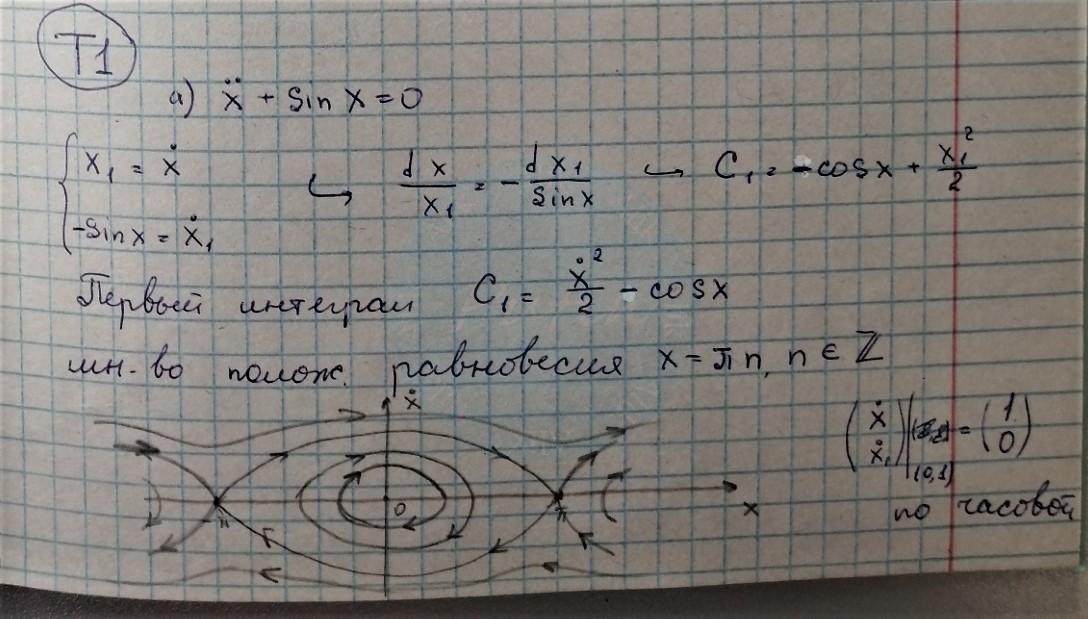 T1
а) ẍ + sin x = 0
{ x₁ = ẋ
-sin x = ẋ₁
↪ dx/x₁ = - dx₁/sin x ↪ C₁ = -cos x + x₁²/2
Первый интеграл C₁ = ẋ²/2 - cos x
мн-во полож. равновесия x = πn, n ∈ ℤ
ẋ
(ẋ ẋ₁)|(0,1) = (1 0)
-π 0 π x
по часовой